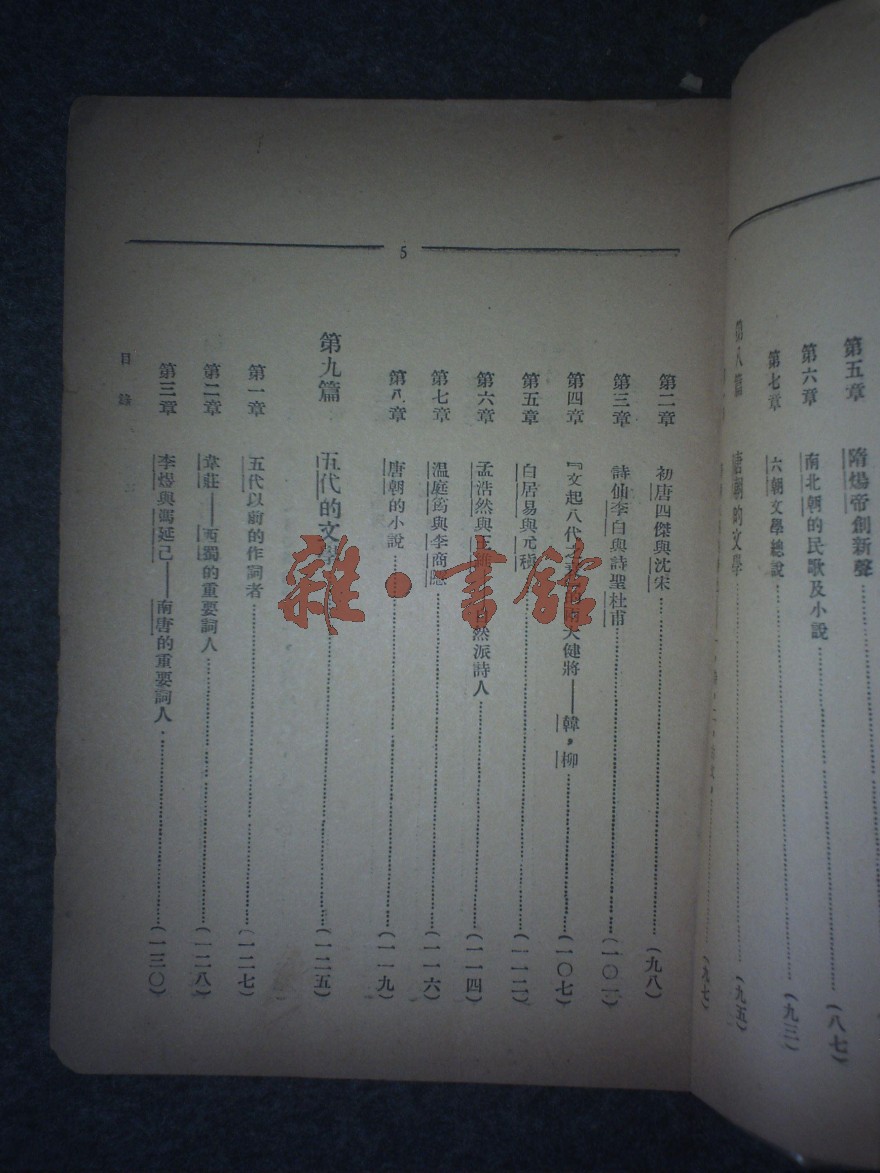 第五章 隋煬帝創新聲 (八七)
第六章 南北朝的民歌及小說 (九三)
第七章 六朝文學總說
第八篇 唐朝的文學 (九五)
(九七)
5
第二章 初唐四傑與沈宋 (九八)
第三章 詩仙李白與詩聖杜甫 (一〇一)
第四章 『文起八代之衰』的兩大健將——韓,柳 (一〇七)
第五章 白居易與元稹 (一一二)
第六章 孟浩然與王維 自然派詩人 (一一四)
第七章 温庭筠與李商隱 (一一六)
第八章 唐朝的小說 (一一九)
第九篇 五代的文學 (一二五)
第一章 五代以前的作詞者 (一二七)
第二章 韋莊——西蜀的重要詞人 (一二八)
第三章 李煜與馮延己——南唐的重要詞人 (一三〇)
目錄
雜·書館